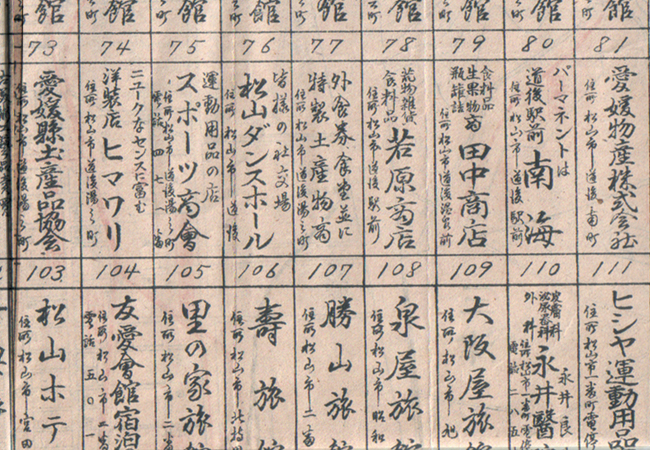 館
館
館
館
館
館
館
館
73
74
75
76
77
78
79
80
81
愛媛縣土産品協会
住所 松山市道後湯之町
ニユークなセンスに富む
洋装店 ヒマワリ
住所 松山市道後湯之町
運動用品の店
スポーツ商會
住所 松山市道後湯之町
皆様の社交場
松山ダンスホール
住所 松山市道後
外食券食堂並に
特製土産物商
住所 松山市道後駅前
荒物雑貨
食料品 若原商店
住所 松山市道後駅前
食料品
生果物商
瓶罐詰
田中商店
住所 松山市道後
パーマネントは
道後駅前 南海
住所 松山市道後駅前
愛媛物産株式会社
住所 松山市道後
103
104
105
106
107
108
109
110
111
松山ホテ
住所 松山市
友愛會館宿泊
住所 松山市
電話 五〇一
里の家旅館
住所 松山市二番
壽旅館
住所 松山市北持
勝山旅館
住所 松山市二番
泉屋旅館
住所 松山市昭和
大阪屋旅館
住所 松山市旭
皮膚科
泌尿器科
外科
永井良
永井醫
住所 松山市二番町電停
電話 二八五
ヒシヤ運動用品
住所 松山市二番町電停